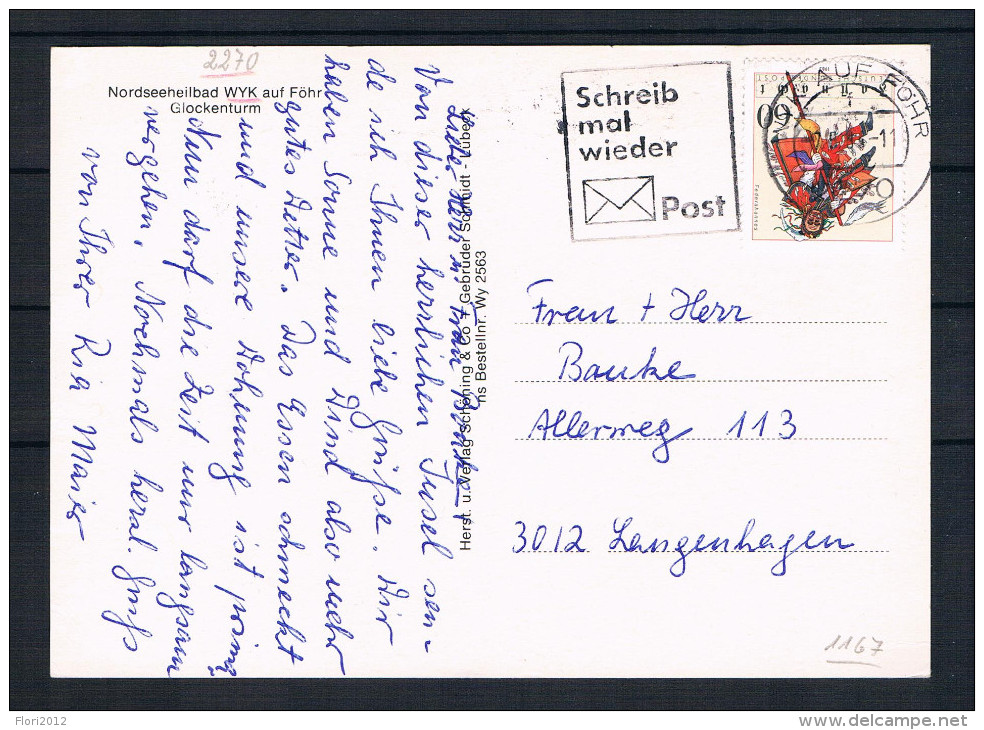 2270
Nordseeheilbad WYK auf Föhr
Glockenturm
Schreib
mal
wieder
Post
AUF FÖHR
60
Lieber Herr u. Frau Bauke!
Von dieser herrlichen Insel sen-
de ich Ihnen liebe Grüße. Wir
haben Sonne und sind also sehr
gutes Wetter. Das Essen schmeckt
und unsere Wohnung ist prima
Nun darf die Zeit nur langsam
vergehen. Nochmals herzl. Gruß
von Ihrer Ria Maier
Herst. u. Verlag Schöning & Co + Gebrüder Schmidt - Lübeck
ns Bestellnr. Wy 2563
Frau + Herr
Bauke
Allerweg 113
3012 Langenhagen
1167
Flori2012
delcampe.net